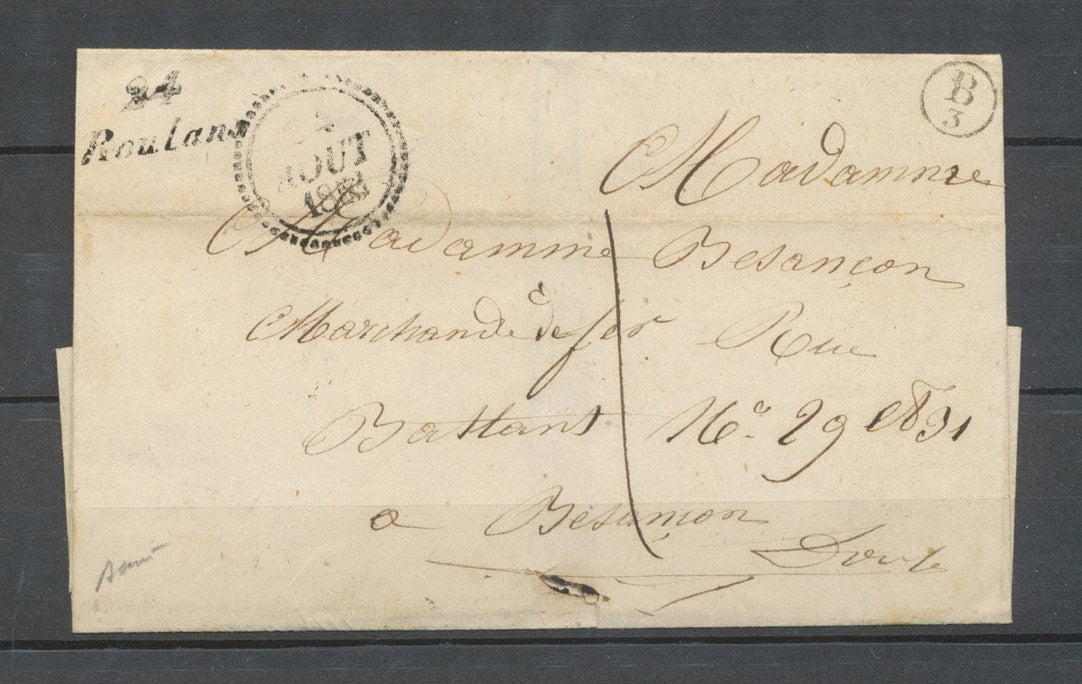 24
Roulans
AOUT
B
3
Madamme
Madamme Besançon
Marchande de fer Rue
Battant N.o 29 et 31
a Besançon
Doubs